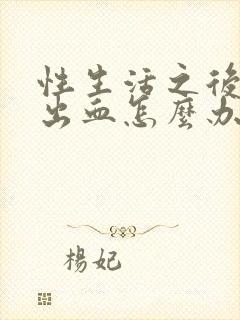 性生活之後
出血怎麼办
楊妃